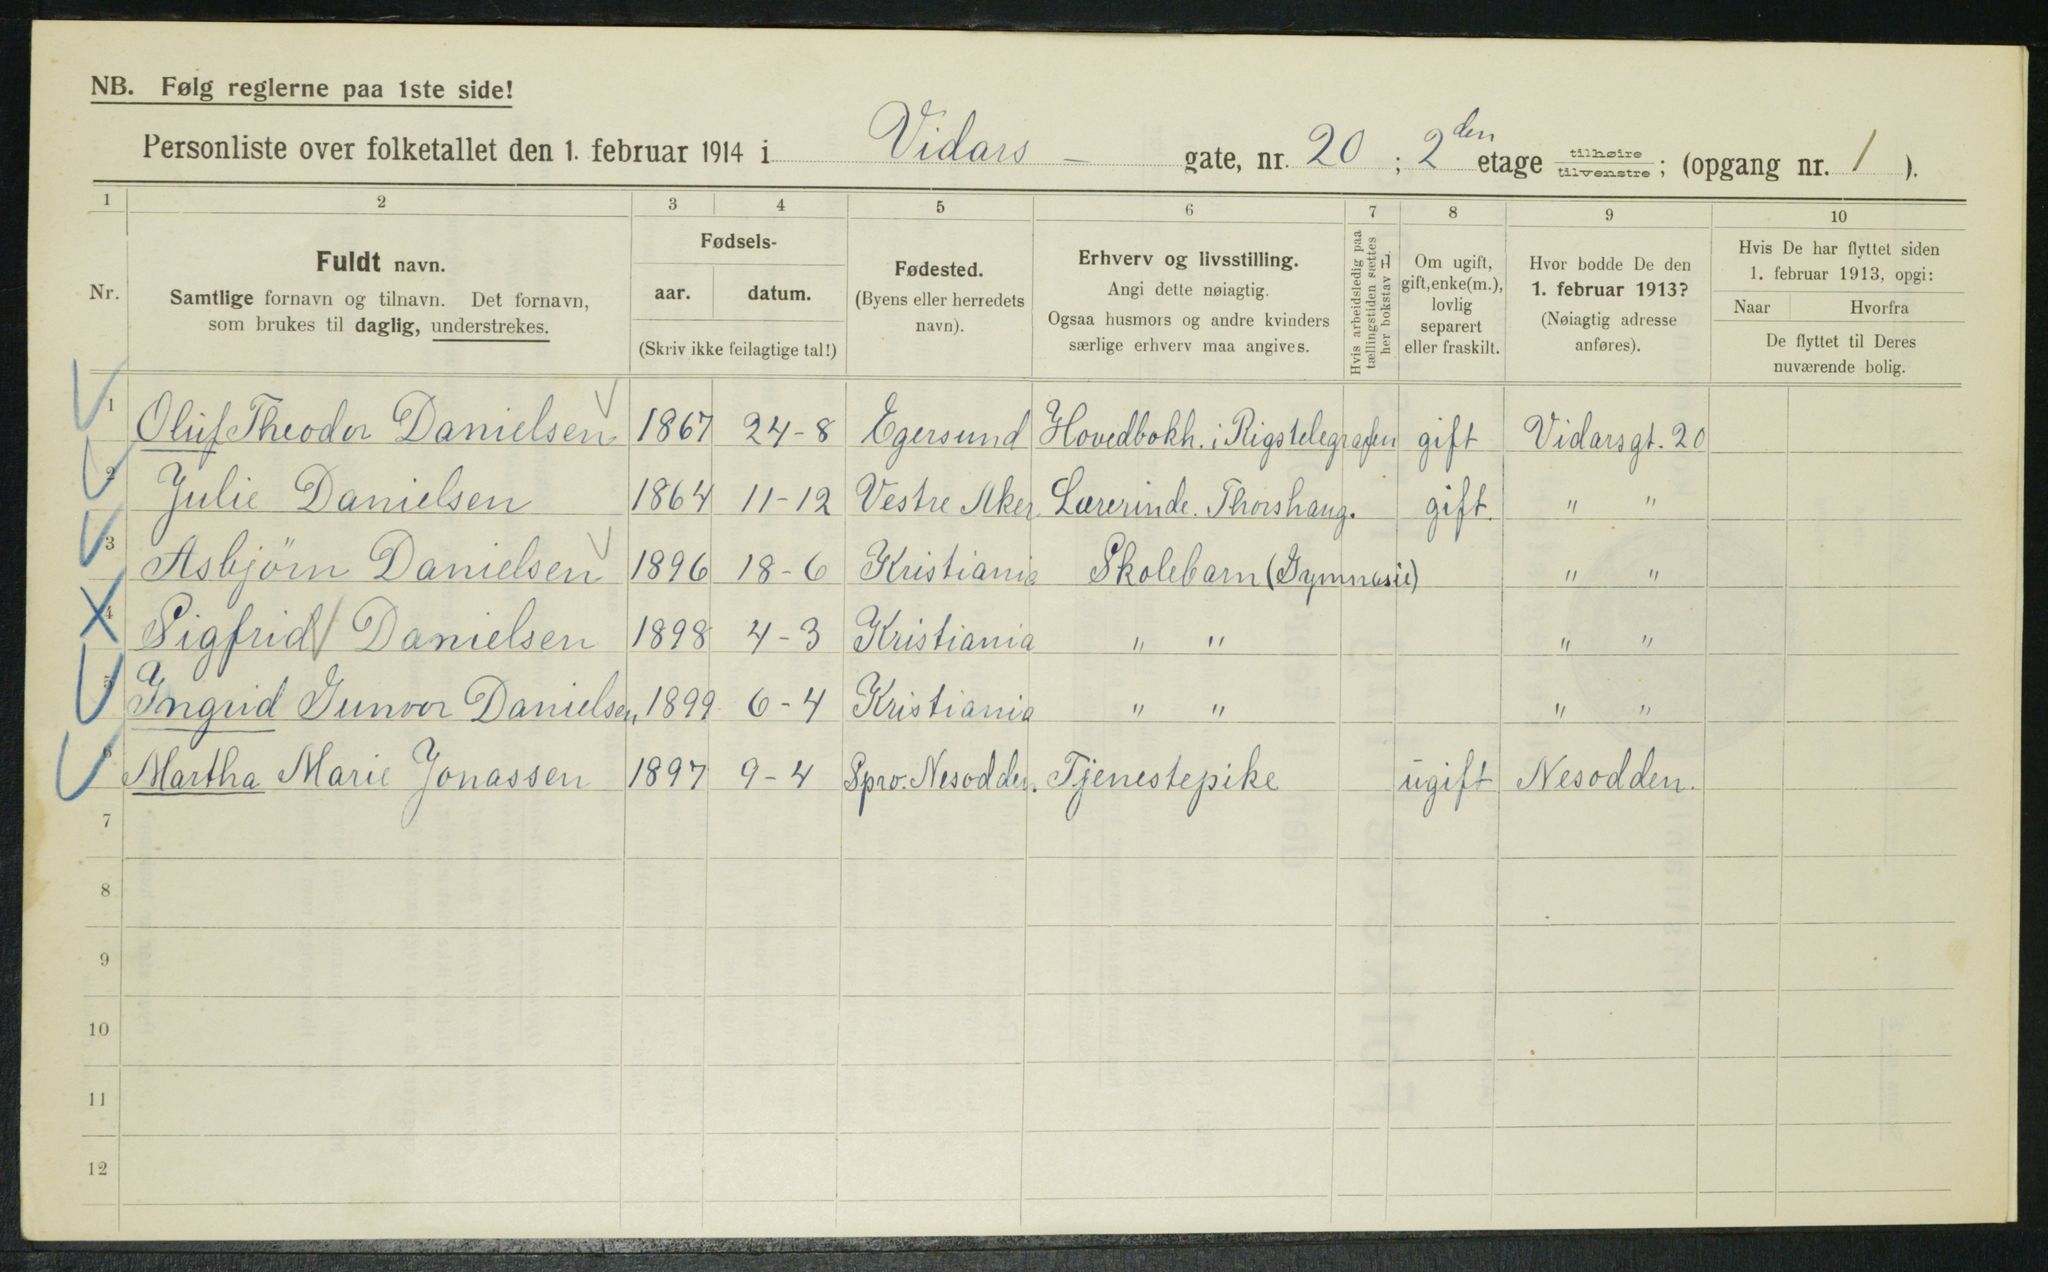 NB. Følg reglerne paa 1ste side!
Personliste over folketallet den 1. februar 1914 i Vidars – gate, nr. 20 ; 2den etage tilhøire tilvenstre ; (opgang nr. 1 ).
1 2 3 4 5 6 7 8 9 10
Nr.
Fuldt navn.
Samtlige fornavn og tilnavn. Det fornavn,
som brukes til daglig, understrekes.
Fødsels-
aar. datum.
(Skriv ikke feilagtige tal!)
Fødested.
(Byens eller herredets
navn).
Erhverv og livsstilling.
Angi dette nøiagtig.
Ogsaa husmors og andre kvinders
særlige erhverv maa angives.
Hvis arbeidsledig paa
tællingstiden sættes
her bokstav L.
Om ugift,
gift, enke(m.),
lovlig
separert
eller fraskilt.
Hvor bodde De den
1. februar 1913?
(Nøiagtig adresse
anføres).
Hvis De har flyttet siden
1. februar 1913, opgi:
Naar Hvorfra
De flyttet til Deres
nuværende bolig.
1 Oluf Theodor Danielsen 1867 24-8 Egersund Hovedbokh. i Rigstelegrafen gift Vidarsgt. 20
2 Julie Danielsen 1864 11-12 Vestre Aker Lærerinde. Thorshaug. gift. " "
3 Asbjörn Danielsen 1896 18-6 Kristiania Skolebarn (Gymnasie) " "
4 Sigfrid Danielsen 1898 4-3 Kristiania " " " "
5 Ingrid Gunvor Danielsen, 1899 6-4 Kristiania " " " "
6 Martha Marie Jonassen 1897 9-4 Spro. Nesodden. Tjenestepike ugift Nesodden.
7
8
9
10
11
12